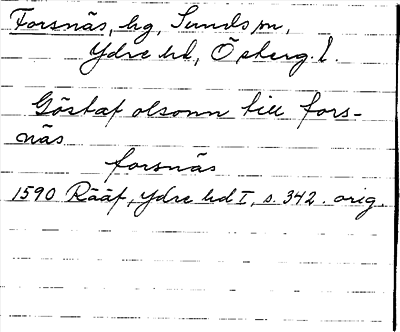 Forsnäs, hg, Sunds sn,
Ydre hd, Österg. l.
Göstaf olsonn till fors-
näs
forsnäs
1590 Rääf, Ydre hd I, s. 342. orig.